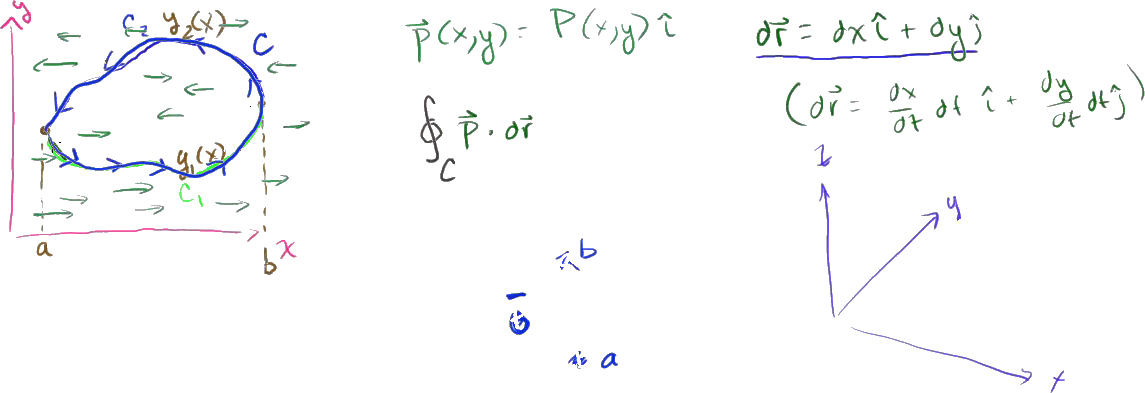 y
C₂ y₂(x)
C
y₁(x)
C₁
a
b
x
P⃗(x,y) = P(x,y) î
∮_C P⃗ · dr⃗
dr⃗ = dx î + dy ĵ
(dr⃗ = dx/dt dt î + dy/dt dt ĵ)
z
y
x
b
a